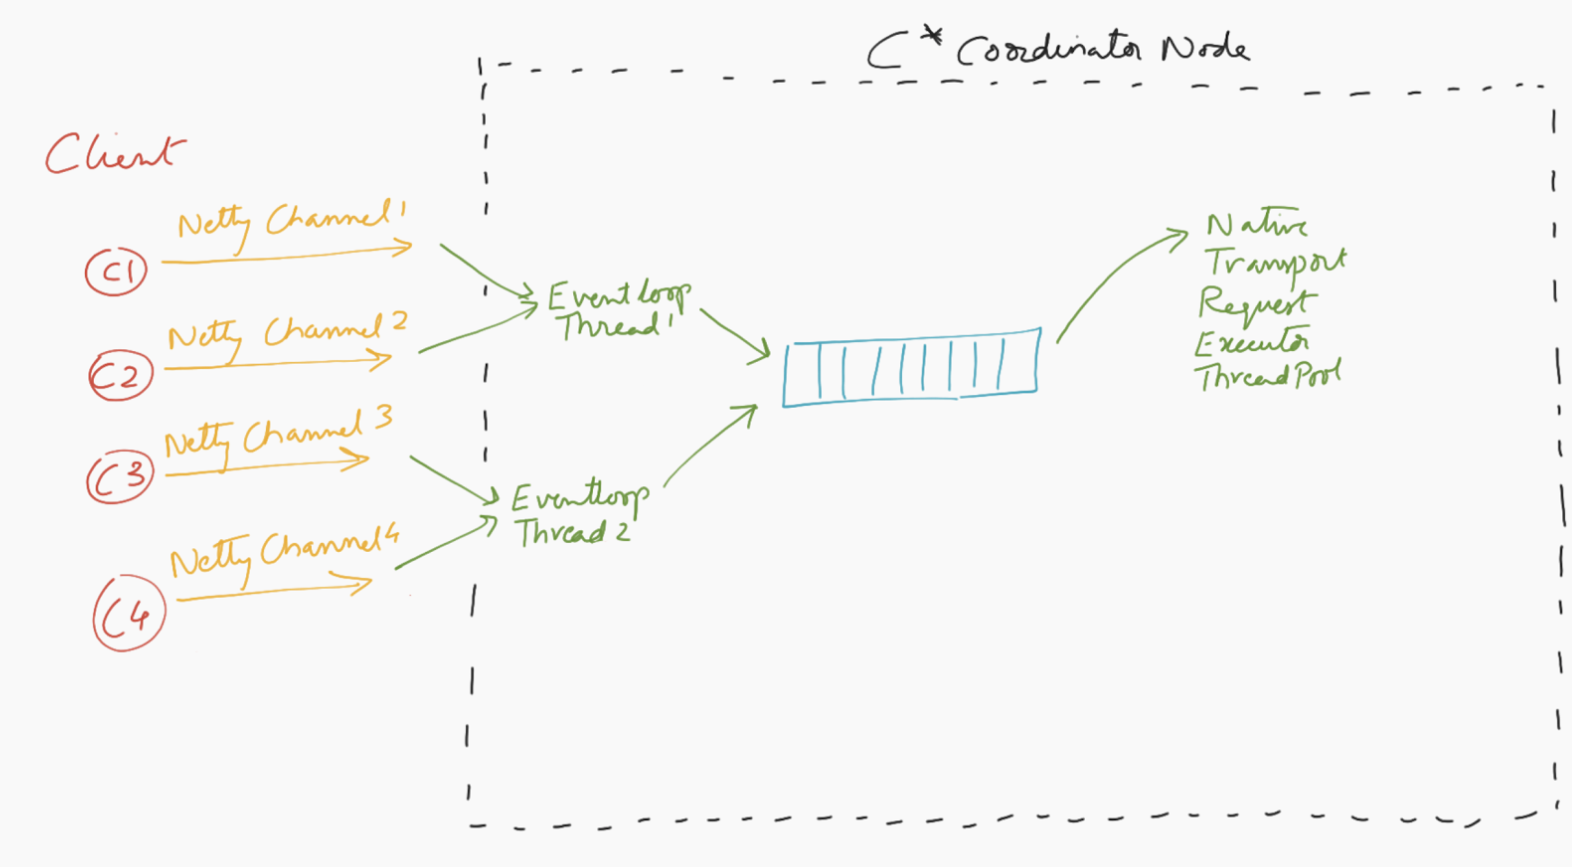 C* Coordinator Node
Client
Netty Channel 1
C1
Netty Channel 2
C2
Netty Channel 3
C3
Netty Channel 4
C4
Event loop
Thread 1
Eventloop
Thread 2
Native
Transport
Request
Executor
ThreadPool